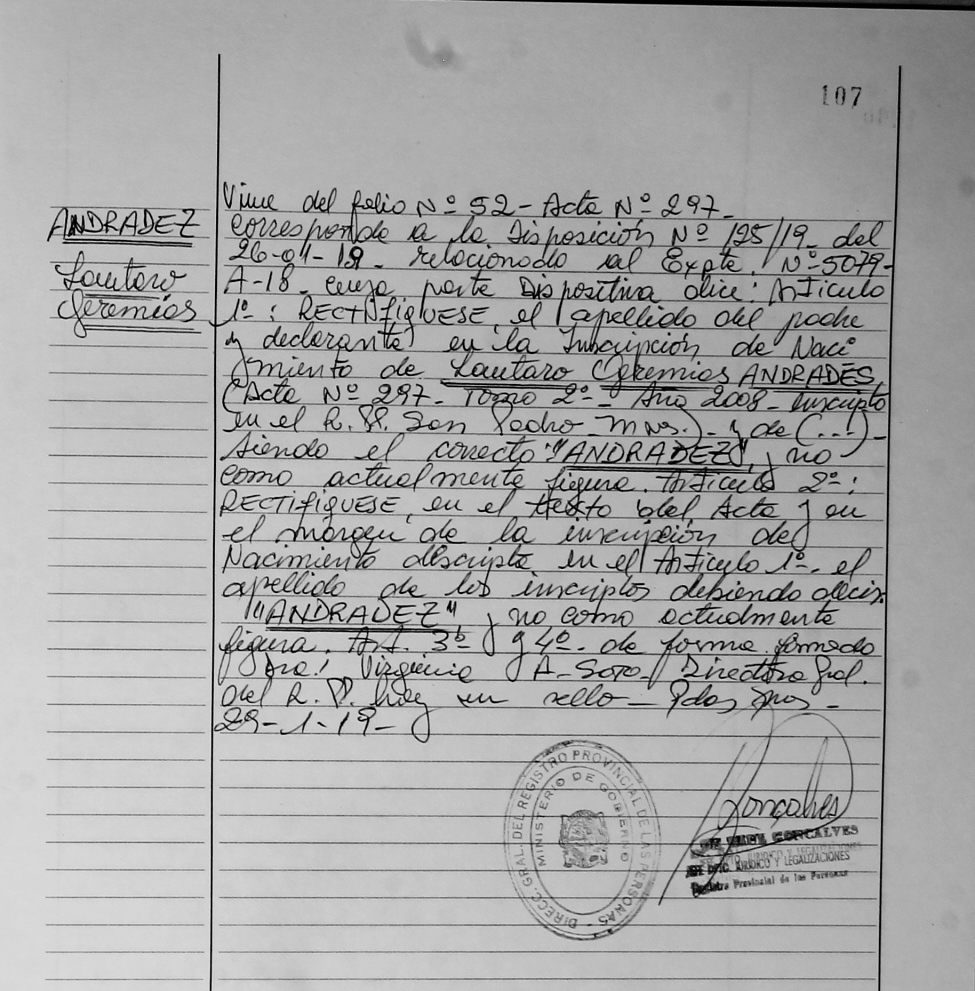 107
ANDRADEZ
Lautaro
Geremias
Viene del folio Nº 52 - Acta Nº 297 -
Corresponde a la Disposición Nº 125/19 - del
26-01-19 - relacionado al Expte. Nº 5079-
A-18 - cuya parte Dispositiva dice: Artículo
1º: RECTIFIQUESE, el apellido del padre
y declarante en la Inscripción de Naci
miento de Lautaro Geremias ANDRADES,
(Acta Nº 297 - Tomo 2º - Año 2008 - inscripto
en el R. P. San Pedro - Mnes.) - y de (...) -
siendo el correcto "ANDRADEZ", y no
como actualmente figura. Artículo 2º:
RECTIFIQUESE, en el texto del Acta y en
el margen de la inscripción de
Nacimiento descripta en el Artículo 1º, el
apellido de los inscriptos debiendo decir
"ANDRADEZ" y no como actualmente
figura. Art. 3º y 4º - de forma. Firmado
Dra: Virginia A. Soto - Directora Gral.
del R. P. hay un sello - Pdas Mnes -
29-1-19 -
DIRECC. GRAL. DEL REGISTRO PROVINCIAL DE LAS PERSONAS
MINISTERIO DE GOBIERNO
Gonçalves
GONCALVES
JURIDICO Y LEGALIZACIONES
Registro Provincial de las Personas